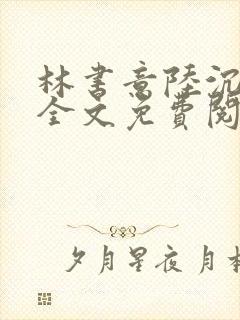 林书意陸沉
全文免費閱
夕月星夜 月